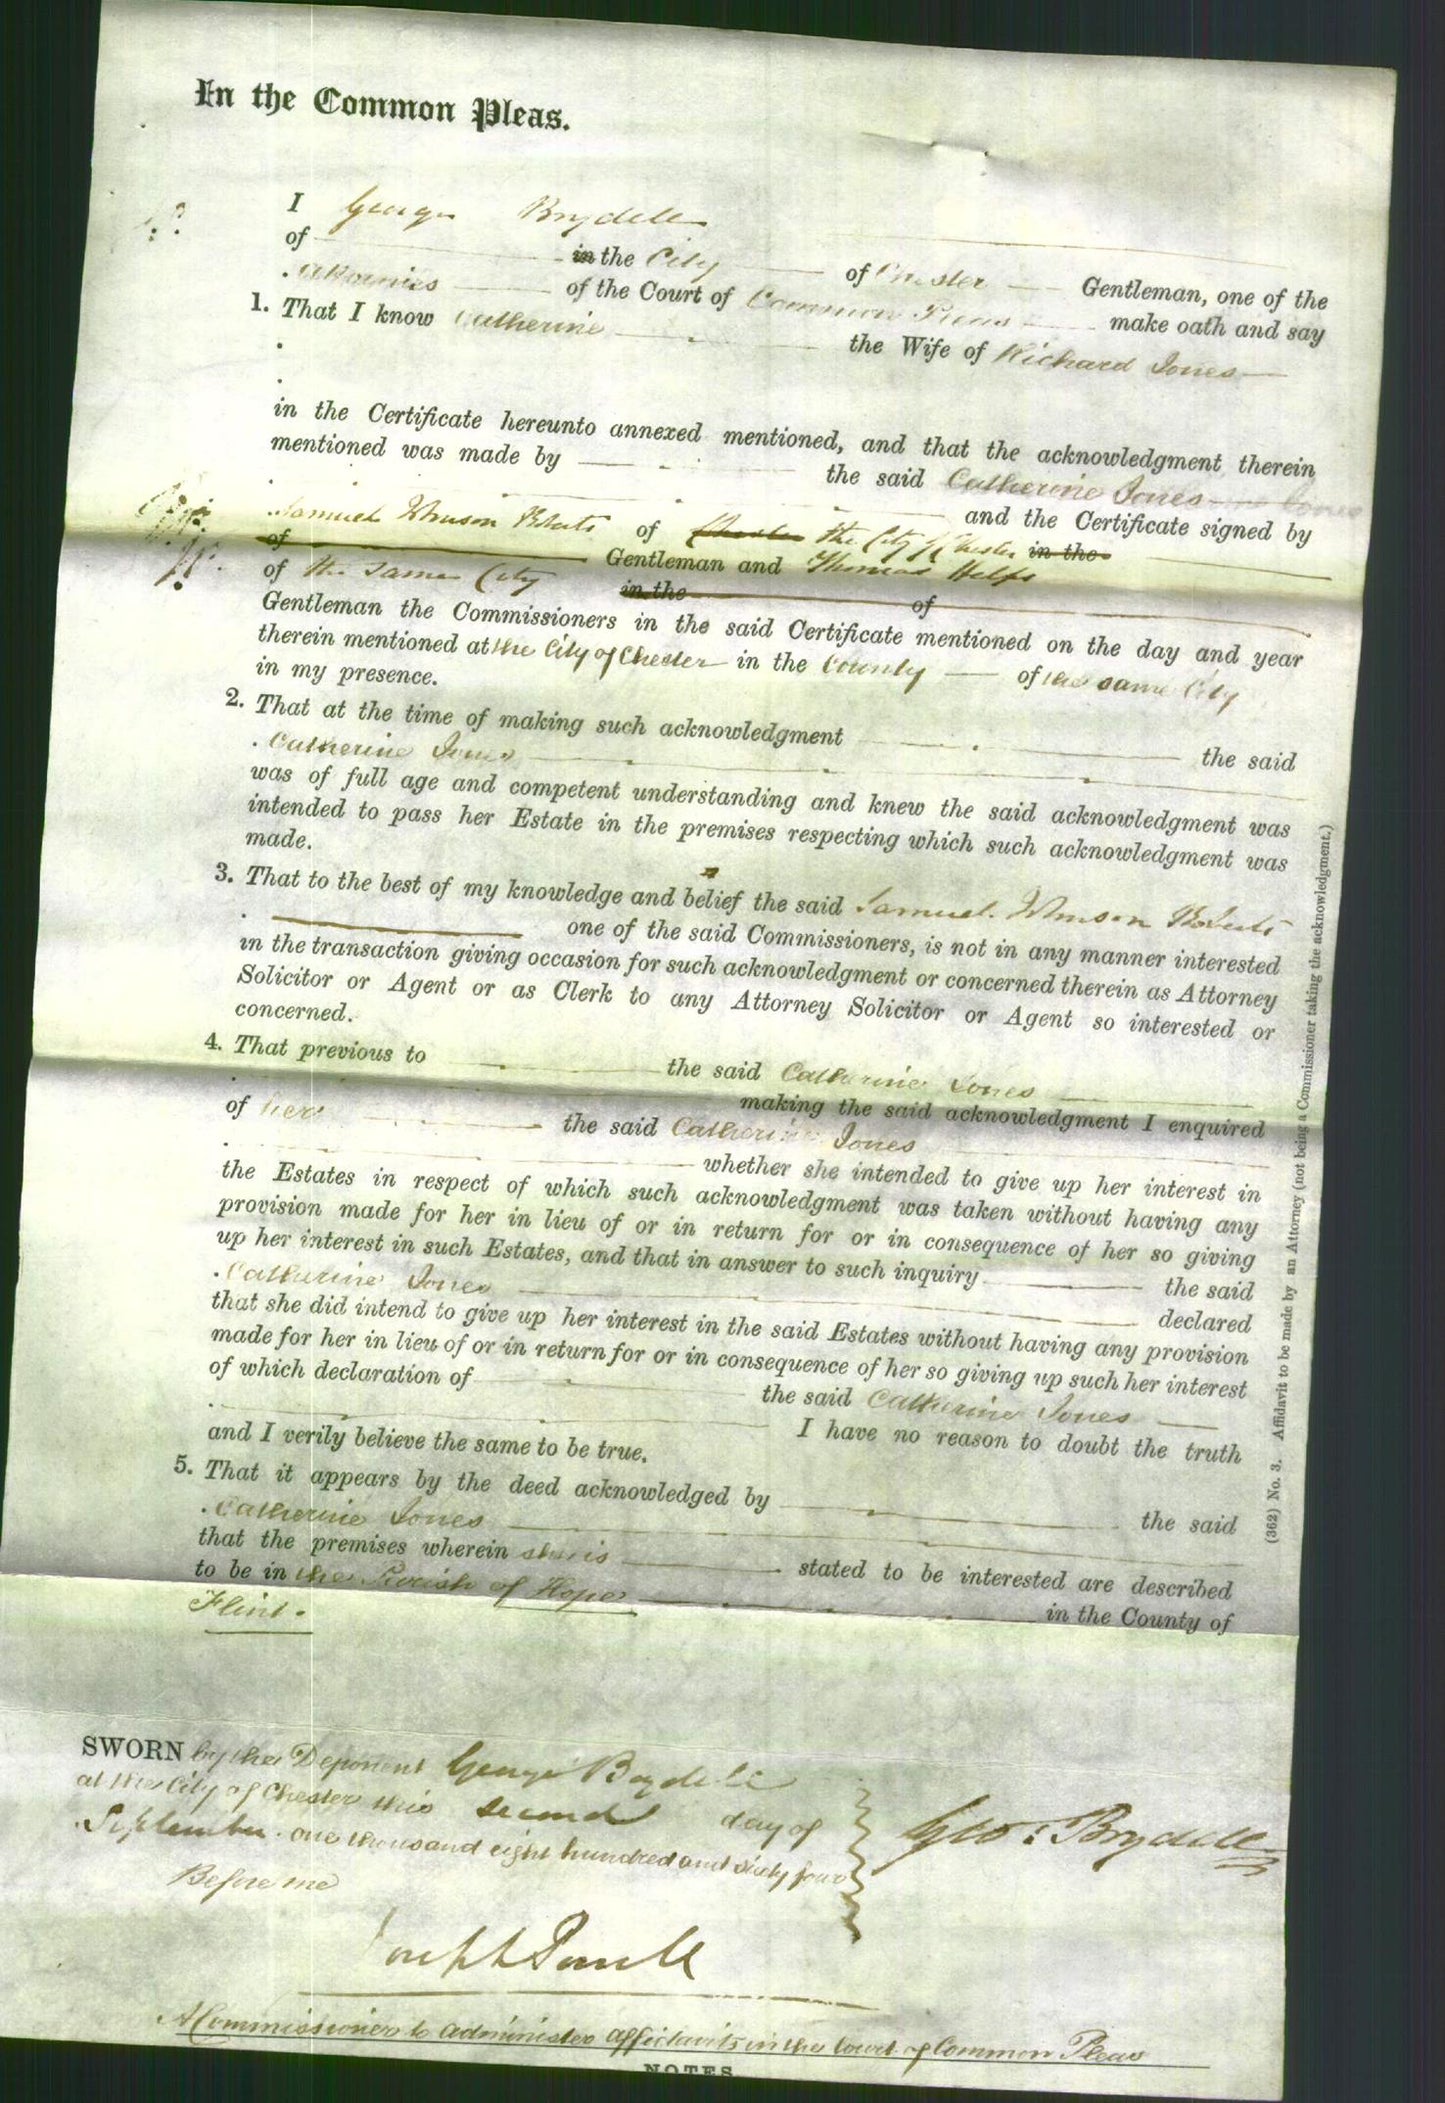 In the Common Pleas.
I George Boydell
of in the City of Chester Gentleman, one of the
Attornies of the Court of Common Pleas make oath and say
1. That I know Catherine the Wife of Richard Jones
in the Certificate hereunto annexed mentioned, and that the acknowledgment therein
mentioned was made by the said Catherine Jones
and the Certificate signed by
Samuel Roberts of Chester the City of Chester in the
of Gentleman and Thomas Helps
of the same City in the of
Gentleman the Commissioners in the said Certificate mentioned on the day and year
therein mentioned at the City of Chester in the County of the same City
in my presence.
2. That at the time of making such acknowledgment the said
Catherine Jones
was of full age and competent understanding and knew the said acknowledgment was
intended to pass her Estate in the premises respecting which such acknowledgment was
made.
3. That to the best of my knowledge and belief the said Samuel Roberts
one of the said Commissioners, is not in any manner interested
in the transaction giving occasion for such acknowledgment or concerned therein as Attorney
Solicitor or Agent or as Clerk to any Attorney Solicitor or Agent so interested or
concerned.
4. That previous to the said Catherine Jones
making the said acknowledgment I enquired
of her the said Catherine Jones
whether she intended to give up her interest in
the Estates in respect of which such acknowledgment was taken without having any
provision made for her in lieu of or in return for or in consequence of her so giving
up her interest in such Estates, and that in answer to such inquiry the said
Catherine Jones declared
that she did intend to give up her interest in the said Estates without having any provision
made for her in lieu of or in return for or in consequence of her so giving up such her interest
of which declaration of the said Catherine Jones
I have no reason to doubt the truth
and I verily believe the same to be true.
5. That it appears by the deed acknowledged by the said
Catherine Jones
that the premises wherein she is stated to be interested are described
to be in the Parish of Hope in the County of
Flint.
SWORN by the Deponent George Boydell
at the City of Chester this second day of
September one thousand eight hundred and sixty four
Before me
Geo: Boydell
Joseph
A Commissioner to administer affidavits in the Court of Common Pleas
NOTES
(362) No. 3. Affidavit to be made by an Attorney (not being a Commissioner taking the acknowledgment.)